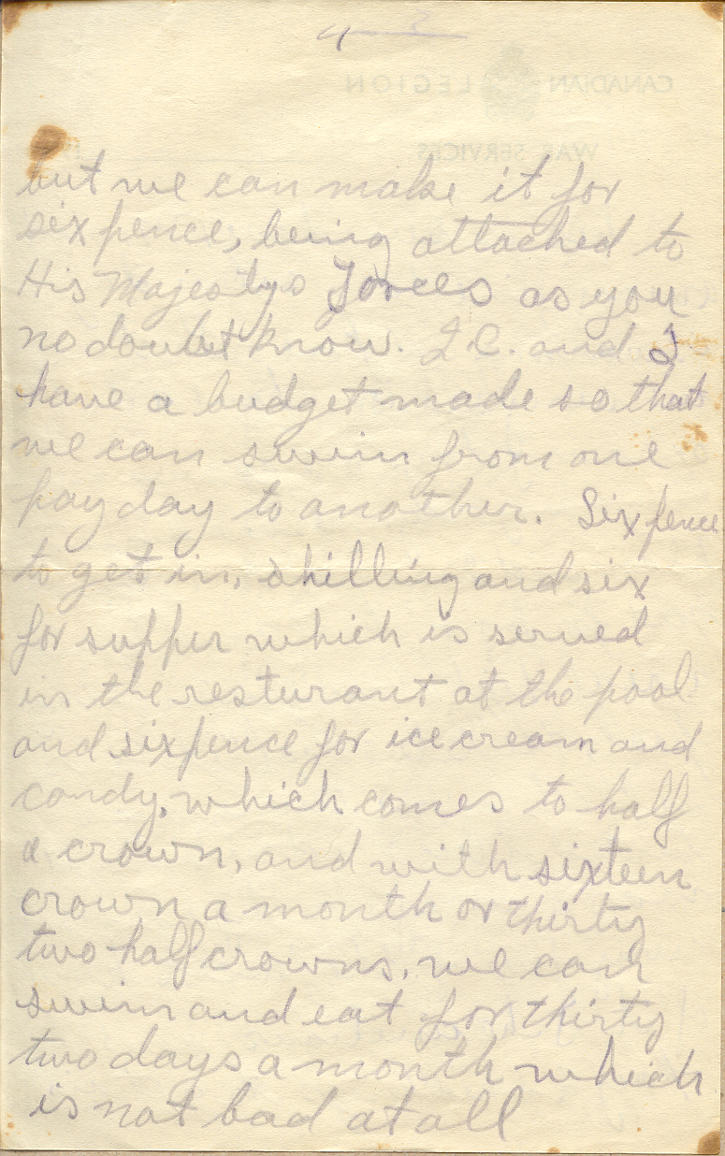 4 3
CANADIAN LEGION
WAR SERVICES
but we can make it for
sixpence, being attached to
His Majestys Forces as you
no doubt know. J.C. and I
have a budget made so that
we can swim from one
payday to another. Sixpence
to get in, shilling and six
for supper which is served
in the resturant at the pool
and sixpence for icecream and
candy, which comes to half
a crown, and with sixteen
crown a month or thirty
two half crowns, we can
swim and eat for thirty
two days a month which
is not bad at all